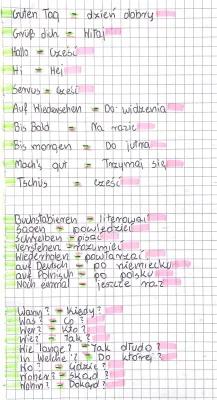 Guten Tag = dzień dobry
Grüß dich = Hitaj
Hallo = Cześć
Hi = Hej
Servus = Cześć
Auf Wiedersehen = Do widzenia
Bis Bald = Na razie
Bis morgen = Do jutra
Mach's gut = Trzymaj się
Tschüs = cześć
Buchstabieren = literować
Sagen = powiedzieć
Schreiben = pisać
Verstehen = rozumieć
Wiederholen = powtarzać
auf Deutsch = po niemiecku
auf Polnisch = po polsku
Noch einmal = jeszcze raz
Wann? = Kiedy?
Was? = Co?
Wer? = Kto?
Wie? = Jak?
Wie lange? = Jak długo?
In Welche? = Do której?
Wo? = Gdzie?
Woher? = Skąd?
Wohin? = Dokąd?